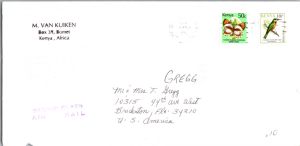 M. VAN KUIKEN
Box 39, Bomet
Kenya, Africa
Kenya 50c
KENYA
GREGG
Mr & Mrs T. Gregg
10315 44th Ave West
Bradenton, Fla. 34210
U. S. America
AIR MAIL